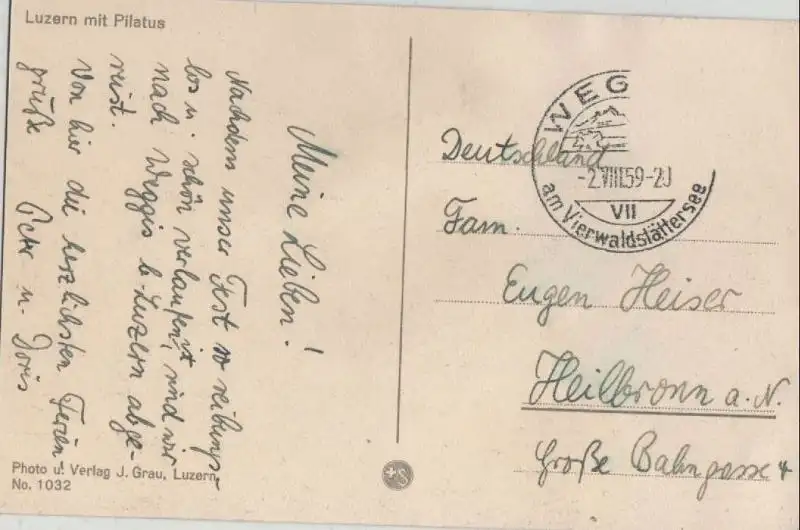 Luzern mit Pilatus
Meine Lieben!
Nachdem unser Fest so reibungs-
los u. schön verlaufen ist, sind wir
nach Weggis b. Luzern abge-
reist.
Von hier die herzlichsten Ferien-
grüße Peter u. Doris
Photo u. Verlag J. Grau, Luzern
No. 1032
WEG
-2.VIII.59-20
VII
am Vierwaldstättersee
Deutschland
Fam.
Eugen Heiser
Heilbronn a. N.
Große Bahngasse 4